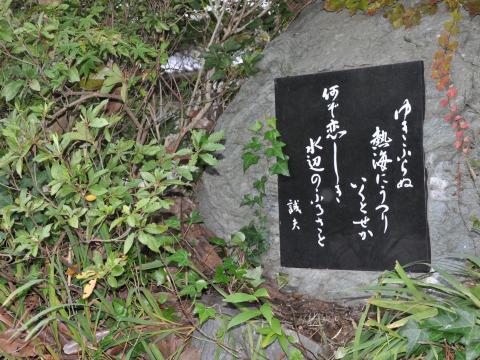 ゆきふらぬ
熱海にうつり
いくとせか
何ぞ恋しき
水辺のふるさと
誠夫